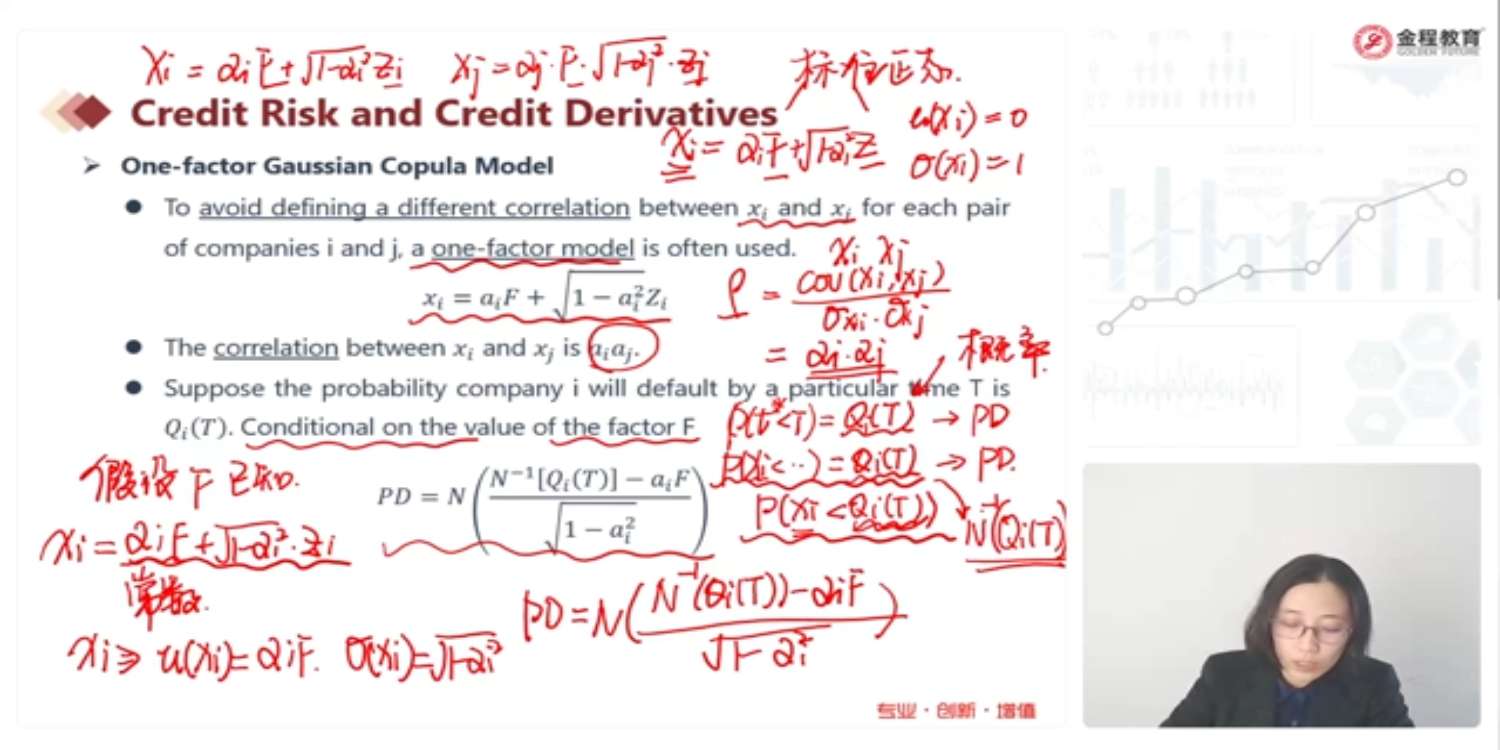 金程教育
GOLDEN FUTURE
xi = aiF + √1-ai² Zi    xj = aj·F·√1-aj²·Zj    标准正态.
Credit Risk and Credit Derivatives
u(xi) = 0
xi = aiF + √1-ai² Z    σ(xi) = 1
➢ One-factor Gaussian Copula Model
● To avoid defining a different correlation between xᵢ and xᵢ for each pair
of companies i and j, a one-factor model is often used.
xi xj
xᵢ = aᵢF + √1 − aᵢ² Zᵢ
ρ = cov(xi, xj) / σxi·σxj
● The correlation between xᵢ and xⱼ is aᵢaⱼ.
= ai·aj    概率
● Suppose the probability company i will default by a particular time T is
Qᵢ(T). Conditional on the value of the factor F
P(t*<T) = Qi(T) → PD
P(xi<··) = Qi(T) → PD.
假设F已知.
PD = N((N⁻¹[Qᵢ(T)] − aᵢF) / √1 − aᵢ²)
P(xi < Qi(T))    N⁻¹(Qi(T))
xi = aiF + √1-ai²·Zi
常数.
PD = N((N⁻¹(Qi(T)) - aiF) / √1-ai²)
xi ⇒ u(xi) = aiF. σ(xi) = √1-ai²
专业·创新·增值